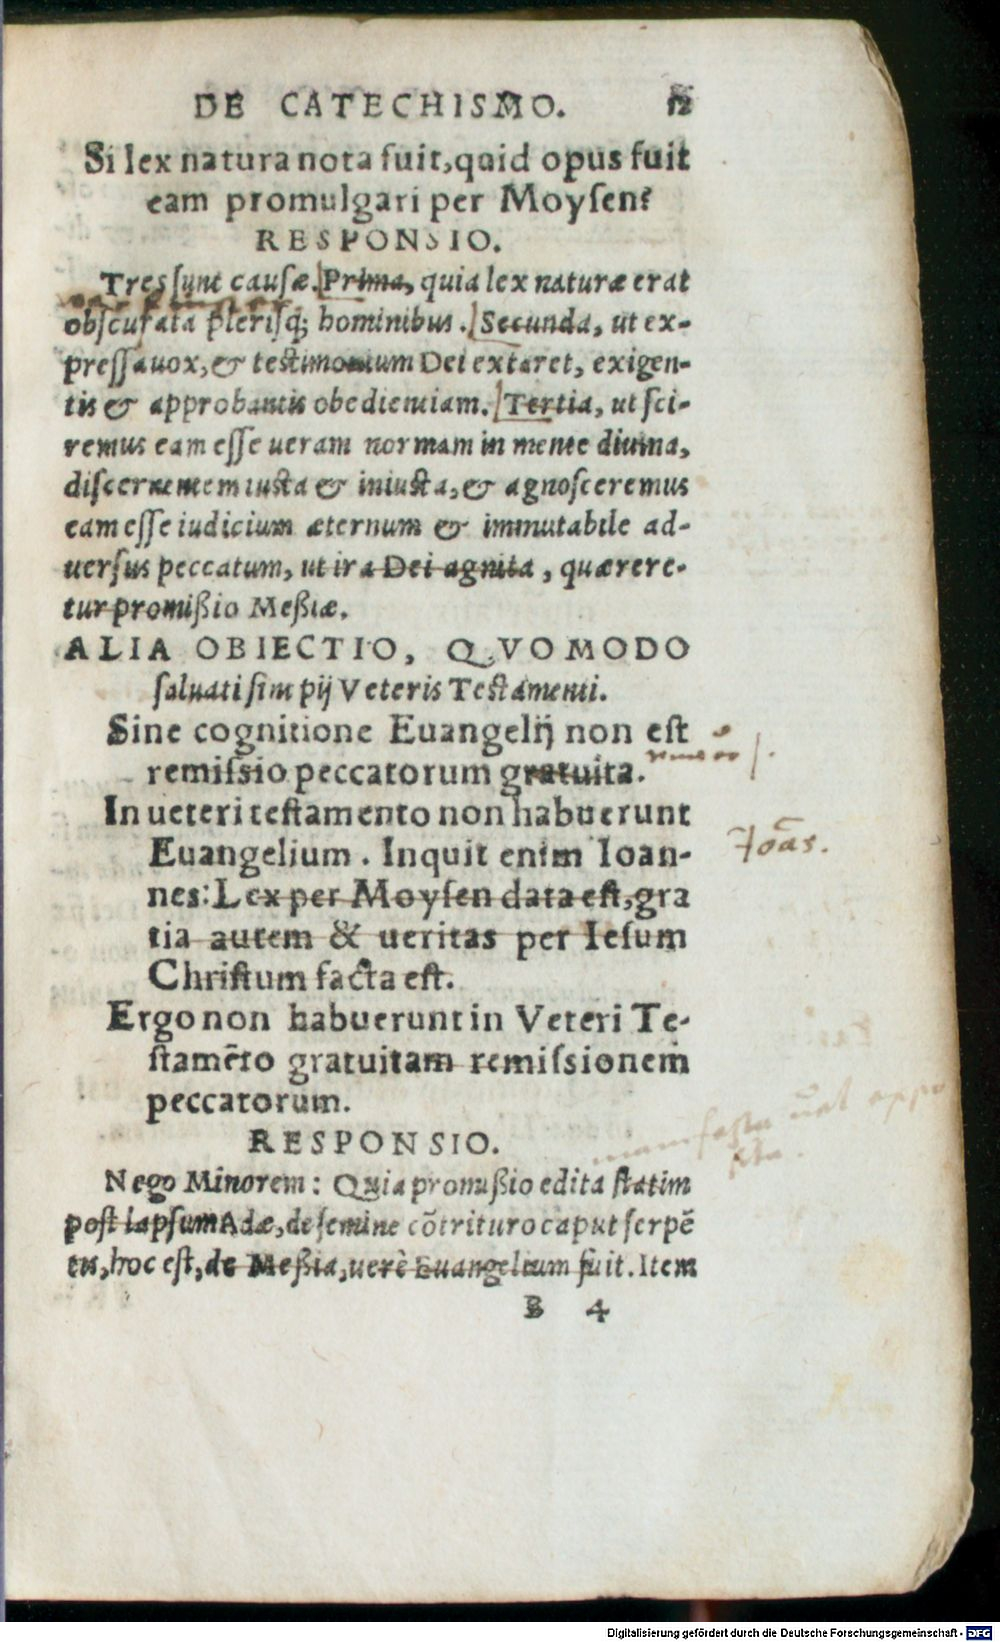 DE CATECHISMO. 12
Si lex natura nota fuit, quid opus fuit
eam promulgari per Moysen?
RESPONSIO.
Tres sunt causæ. Prima, quia lex naturæ erat
obscurata plerisq; hominibus. Secunda, ut ex-
pressa uox, & testimonium Dei extaret, exigen-
tis & approbantis obedientiam. Tertia, ut sci-
remus eam esse ueram normam in mente diuina,
discernentem iusta & iniusta, & agnosceremus
eam esse iudicium æternum & immutabile ad-
uersus peccatum, ut ira Dei agnita, quærere-
tur promißio Meßiæ.
ALIA OBIECTIO, QVOMODO
saluati sint pij Veteris Testamenti.
Sine cognitione Euangelij non est
remissio peccatorum gratuita.
In ueteri testamento non habuerunt
Euangelium. Inquit enim Ioan-
nes: Lex per Moysen data est, gra
tia autem & ueritas per Iesum
Christum facta est.
Ergo non habuerunt in Veteri Te-
stamẽto gratuitam remissionem
peccatorum.
RESPONSIO.
Nego Minorem: Quia promißio edita statim
post lapsum Adæ, de semine cõtrituro caput serpẽ
tis, hoc est, de Meßia, uerè Euangelium fuit. Item
B 4
Joãs.
manifesta uel
Digitalisierung gefördert durch die Deutsche Forschungsgemeinschaft - DFG